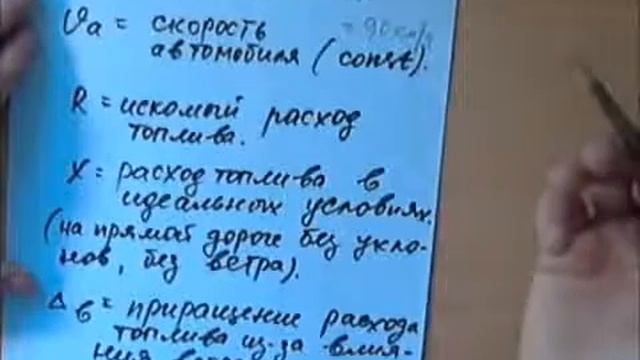 υa = скорость = 90 км/ч
автомобиля (const).
R = искомый расход
топлива.
X = расход топлива в
идеальных условиях.
(на прямой дороге без укло-
нов, без ветра).
Δв = приращение расхода
топлива из-за влия-
ния ветра